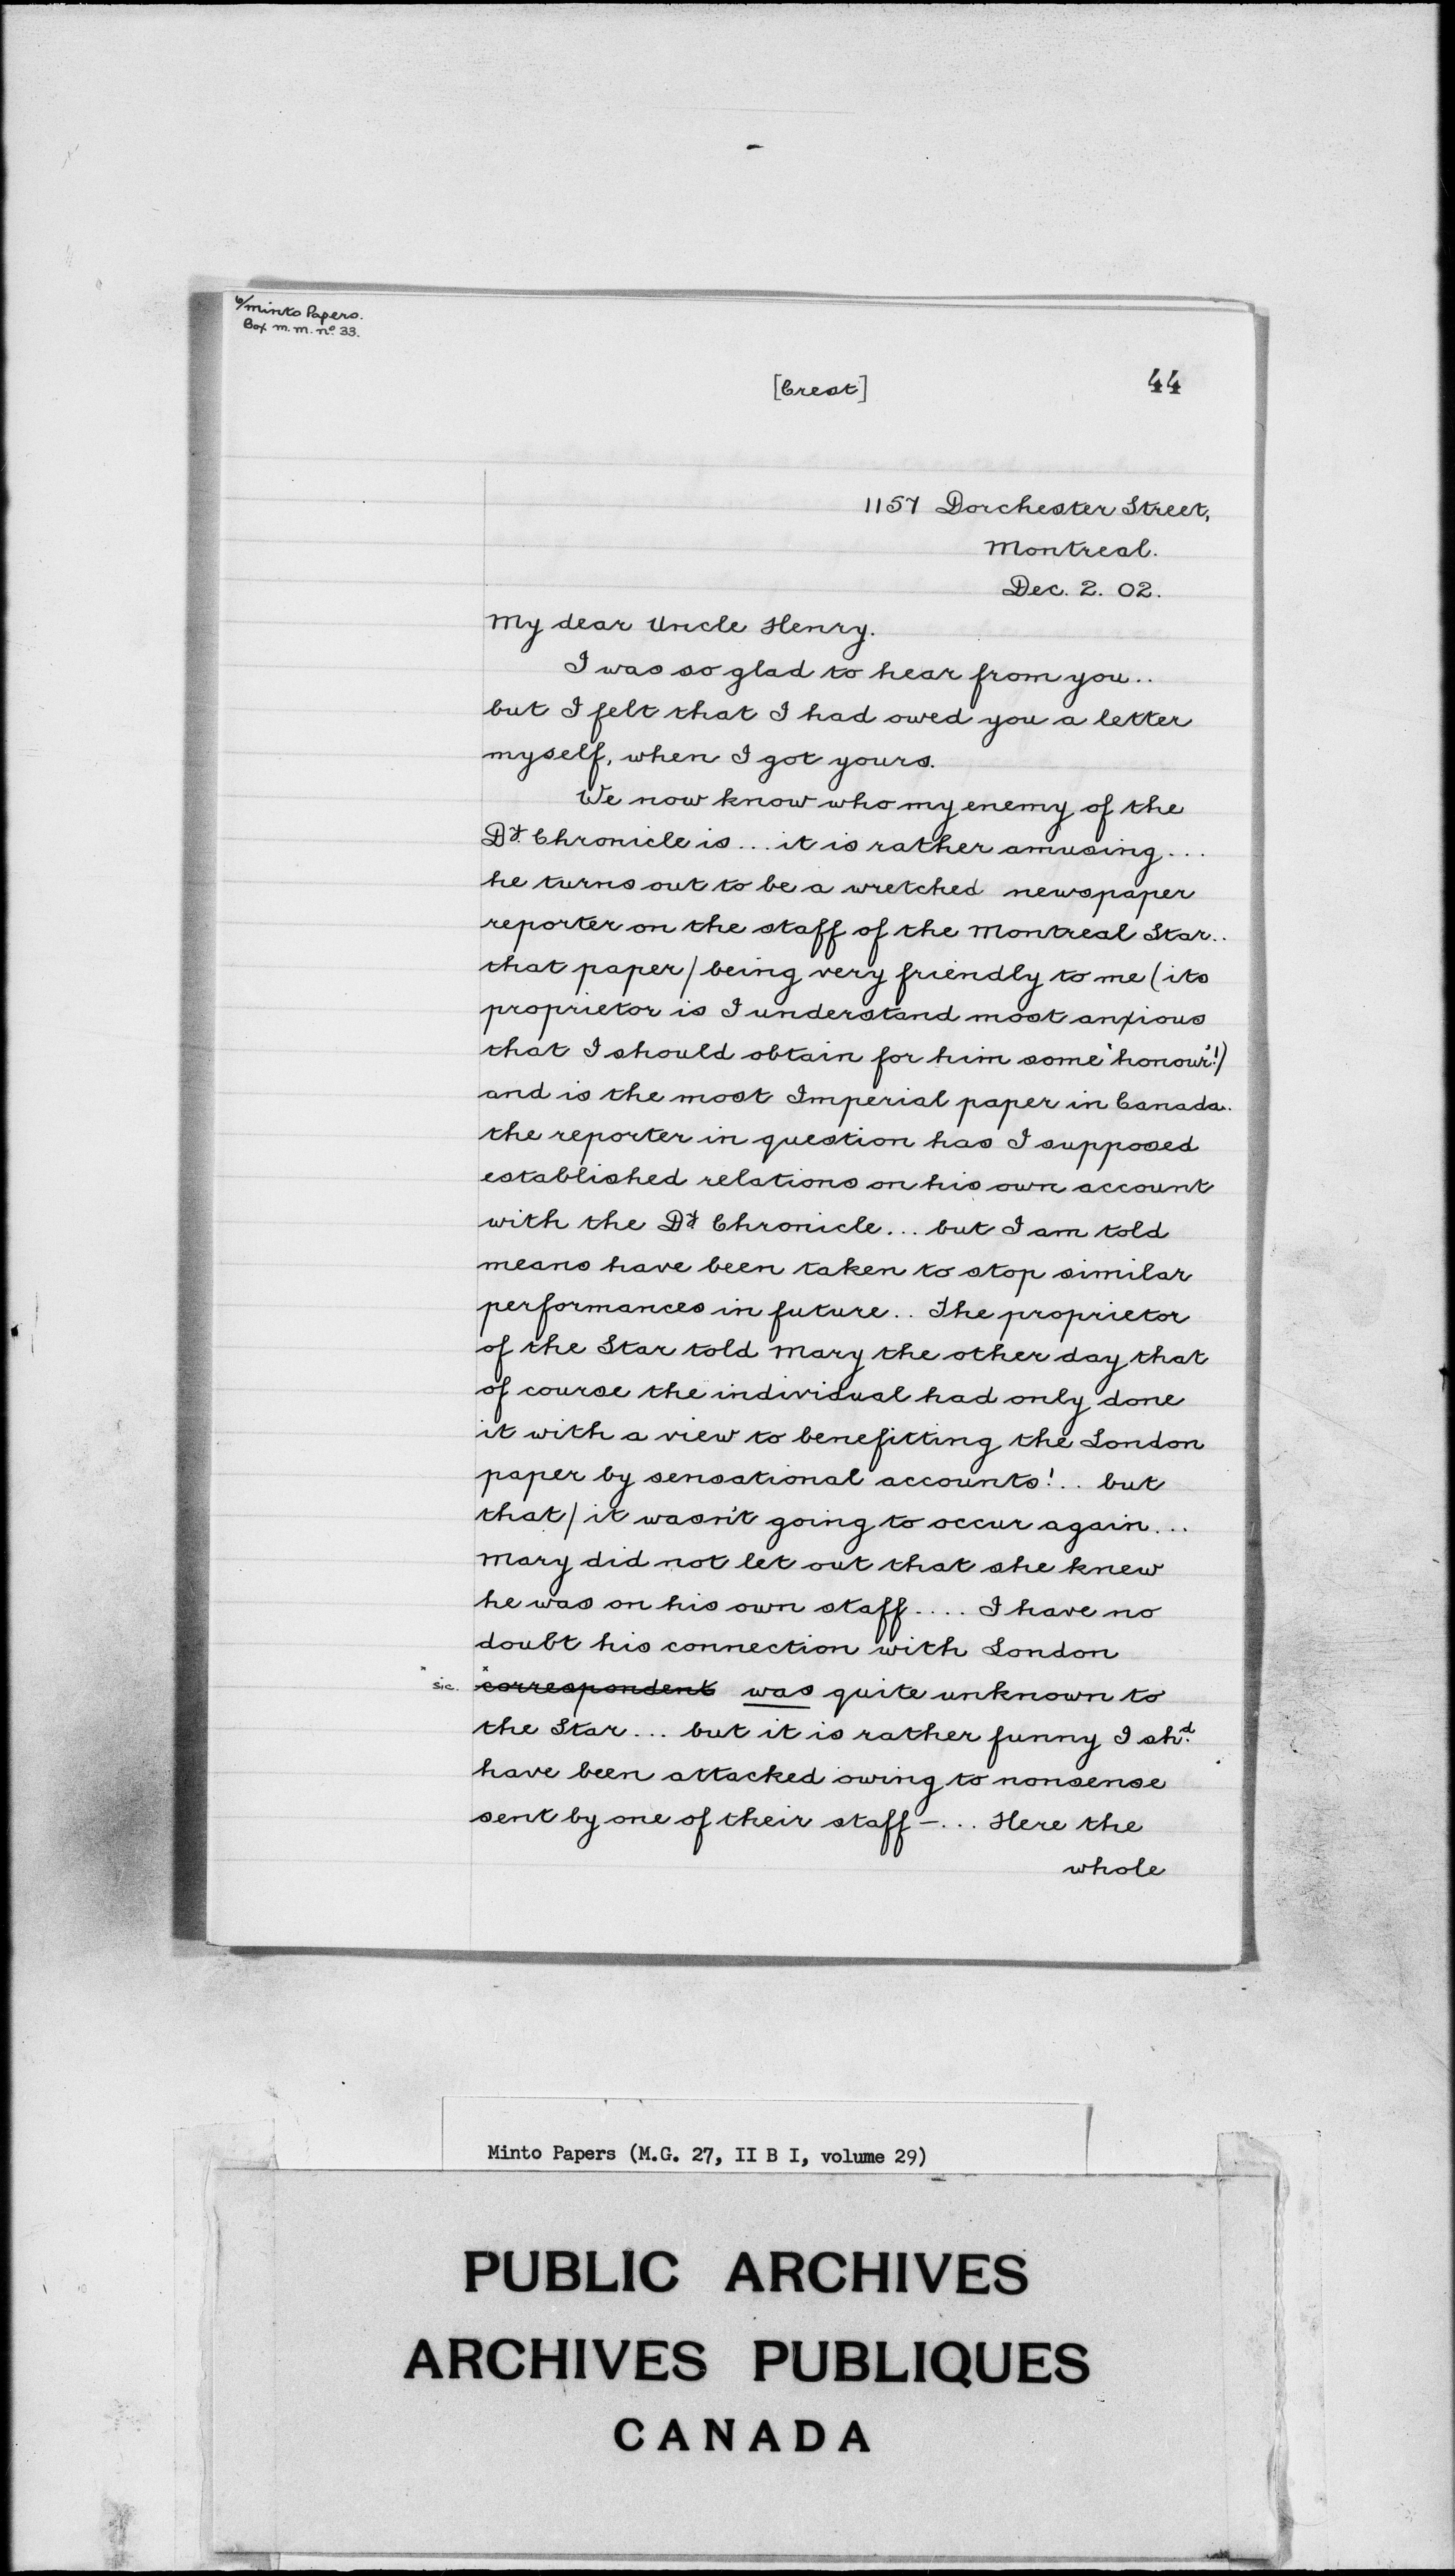 6/Minto Papers.
Box m.m. nº 33.
[Crest]
44
1157 Dorchester Street,
Montreal.
Dec. 2. 02.
My dear Uncle Henry.
I was so glad to hear from you..
but I felt that I had owed you a letter
myself, when I got yours.
We now know who my enemy of the
Dy. Chronicle is... it is rather amusing...
he turns out to be a wretched newspaper
reporter on the staff of the Montreal Star..
that paper / being very friendly to me (its
proprietor is I understand most anxious
that I should obtain for him some 'honour'!)
and is the most Imperial paper in Canada..
the reporter in question has I supposed
established relations on his own account
with the Dy Chronicle... but I am told
means have been taken to stop similar
performances in future.. The proprietor
of the Star told Mary the other day that
of course the individual had only done
it with a view to benefitting the London
paper by sensational accounts!.. but
that / it wasn't going to occur again...
Mary did not let out that she knew
he was on his own staff.... I have no
doubt his connection with London
x sic. x correspondent was quite unknown to
the Star... but it is rather funny I shd.
have been attacked owing to nonsense
sent by one of their staff –... Here the
whole
Minto Papers (M.G. 27, II B I, volume 29)
PUBLIC ARCHIVES
ARCHIVES PUBLIQUES
CANADA